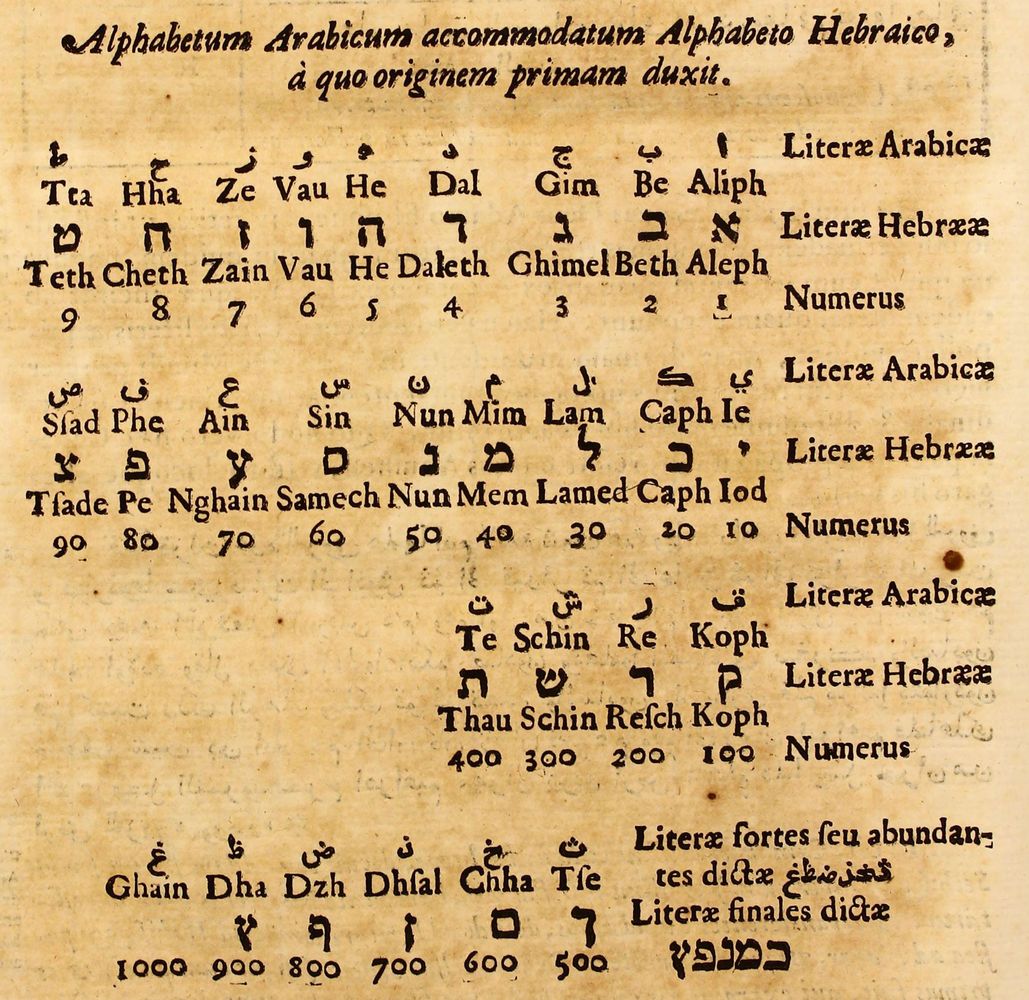 Alphabetum Arabicum accommodatum Alphabeto Hebraico,
à quo originem primam duxit.
ا ب ج د ه و ز ح ط Literæ Arabicæ
Tta Hha Ze Vau He Dal Gim Be Aliph
א ב ג ד ה ו ז ח ט Literæ Hebrææ
Teth Cheth Zain Vau He Daleth Ghimel Beth Aleph
9 8 7 6 5 4 3 2 1 Numerus
ي ك ل م ن س ع ف ص Literæ Arabicæ
Sſad Phe Ain Sin Nun Mim Lam Caph Ie
י כ ל מ נ ס ע פ צ Literæ Hebrææ
Tſade Pe Nghain Samech Nun Mem Lamed Caph Iod
90 80 70 60 50 40 30 20 10 Numerus
ق ر ش ت Literæ Arabicæ
Te Schin Re Koph
ק ר ש ת Literæ Hebrææ
Thau Schin Reſch Koph
400 300 200 100 Numerus
ث خ ذ ض ظ غ Literæ fortes ſeu abundan-
Ghain Dha Dzh Dhſal Chha Tſe tes dictæ ثخذ ضظغ
ך ם ן ף ץ Literæ finales dictæ
1000 900 800 700 600 500 כמנפץ